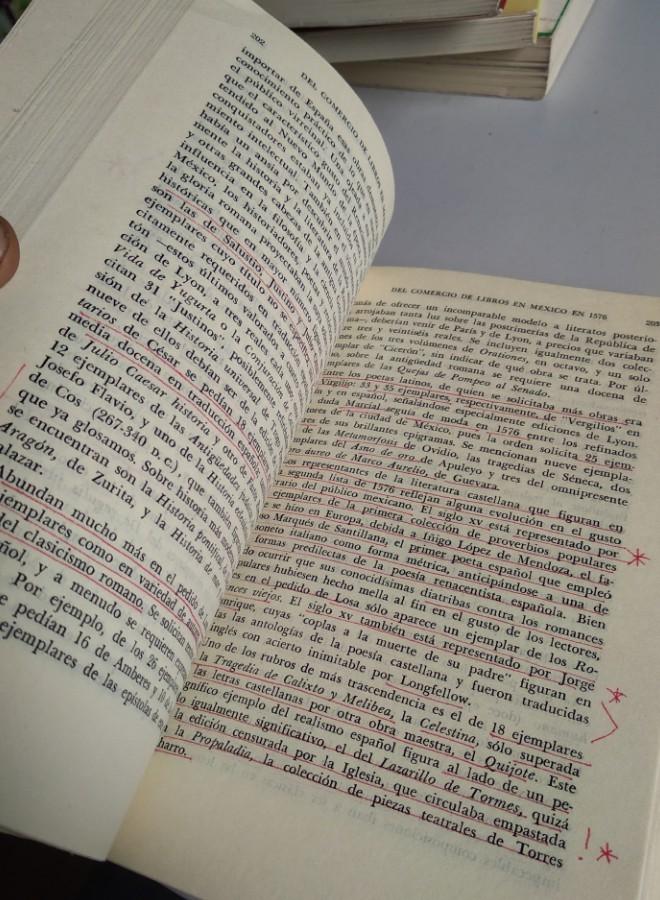 202
DEL COMERCIO DE LIBROS
importar de España esas obras
conocimiento práctico de lo que
el público virreinal. Una ojeada
que el característico gusto
tendido al Nuevo Mundo
conquistadores estaban ya
miento intelectual. También
había un ansia por descubrir
mente la historia antigua
y otras grandes cabezas
influencia en la filosofía y la
México, los historiadores, poetas
la gloria romana proyectan
históricas que en mayor
son las de Salustio, Justino
ejemplares cuyo título no se
citamente requeridos en traducción
tón —estos últimos valorados a
ción de Lyon, a tres reales cada
Vida de Yugurta o la Conjuración
citan 31 "Justinos", posiblemente
sión de la Historia universal,
nueve de ellos debían ser de la
tarios de César se pedían 18
media docena en traducción española
de Julio Caesar historia y otro de
12 ejemplares de las Antigüedades
Josefo Flavio, y uno de la Historia
de Cos (267-340 b. c.), que también
que ya glosamos. Sobre historia más
se encuentran son la Historia pontifical
Aragón, de Zurita, y la Historia de
alazar.
Abundan mucho más en el pedido de
ejemplares como en variedad de
del clasicismo romano. Se solicitan
ñol, y a menudo se requieren
Por ejemplo, de los 26 ejemplares
e pedían 16 de Amberes y 10 de
ejemplares de las epístolas de
DEL COMERCIO DE LIBROS EN MÉXICO EN 1576
más de ofrecer un incomparable modelo a literatos posterio-
arrojaban tanta luz sobre las postrimerías de la República de
deberían venir de París y de Lyon, a precios que variaban
tres y veintiséis reales. Se incluyen igualmente dos colec-
nes de los tres volúmenes de Orationes, en octavo, y un solo
de "Cicerón", sin indicar de qué obra se trata. Por úl-
sobre la antigüedad romana se requiere una docena de
emplares de las Quejas de Pompeo al Senado.
los poetas latinos, de quien se solicitaba más obras era
Virgilio: 33 y 35 ejemplares, respectivamente, de "Vergilios" en
y en español, señalándose especialmente ediciones de Lyon.
Marcial seguía de moda en 1576 entre los refinados
tores de la ciudad de México, pues la orden solicita 25 ejem-
de sus brillantes epigramas. Se mencionan nueve ejempla-
de las Metamorfosis de Ovidio, las tragedias de Séneca, dos
emplares del Asno de oro de Apuleyo y tres del omnipresente
ro áureo de Marco Aurelio, de Guevara.
os representantes de la literatura castellana que figuran en
segunda lista de 1576 reflejan alguna evolución en el gusto
rario del público mexicano. El siglo xv está representado por
ejemplares de la primera colección de proverbios populares
se hizo en Europa, debida a Íñigo López de Mendoza, el fa-
so Marqués de Santillana, el primer poeta español que empleó
soneto italiano como forma métrica, anticipándose a una de
formas predilectas de la poesía renacentista española. Bien
o ocurrir que sus conocidísimas diatribas contra los romances
pulares hubiesen hecho mella al fin en el gusto de los lectores,
es en el pedido de Losa sólo aparece un ejemplar de los Ro-
nces viejos. El siglo xv también está representado por Jorge
nrique, cuyas "coplas a la muerte de su padre" figuran en
as las antologías de la poesía castellana y fueron traducidas
inglés con acierto inimitable por Longfellow.
no de los rubros de más trascendencia es el de 18 ejemplares
la Tragedia de Calixto y Melibea, la Celestina, sólo superada
las letras castellanas por otra obra maestra, el Quijote. Este
gnífico ejemplo del realismo español figura al lado de un pe-
o igualmente significativo, el del Lazarillo de Tormes, quizá
la edición censurada por la Iglesia, que circulaba empastada
la Propaladia, la colección de piezas teatrales de Torres
harro.